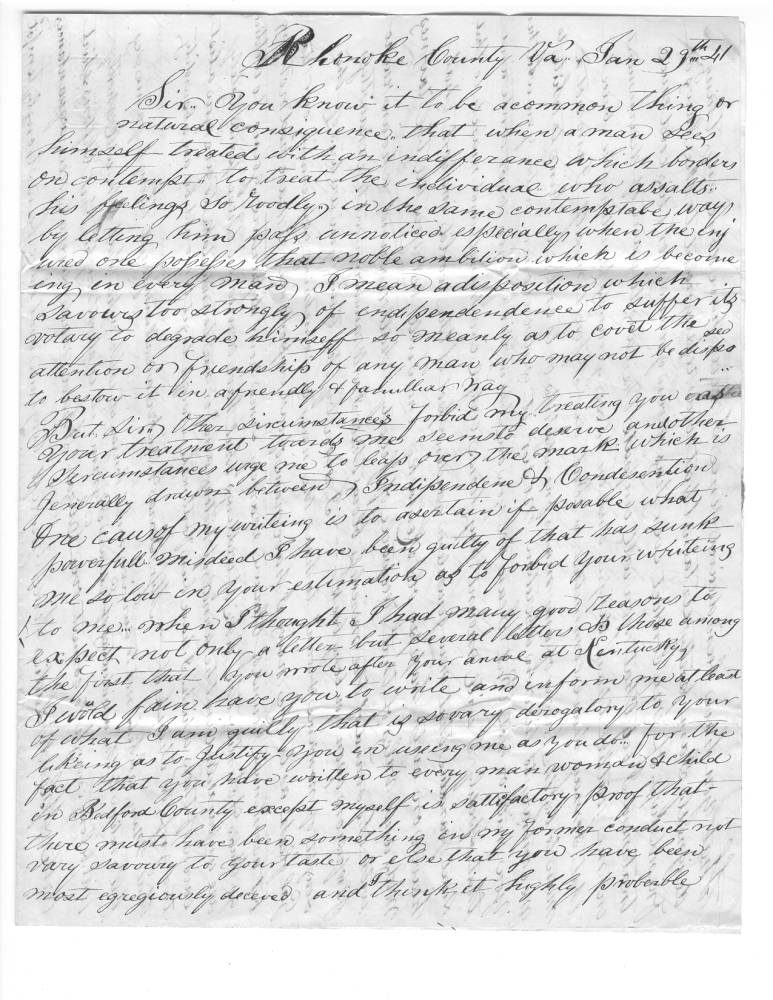 Rhonoke County Va. Jan 29th 41
Sir.. You know it to be acommon thing or
natural consiguence.. that when a man sees
himself treated with an indifferance which borders
on contempt.. to treat the individual who assalts..
his feelings so in the same contemptabe way,
by letting him pass unnoticed especially when the inj
ured one posseses that noble ambition which is becomeing
ing in every man, I mean adisposition which
savours too strongly of indipendendence to suffer its
votary to degrade himself so meanly as to covet the
attention or friendship of any man who may not be dispo sed
to bestow it in afriendly & familliar way
But Sir.. Other sircumstances forbid my treating you as
Your treatment towards me seemsto deserve andother
Sircumstances urge me to leap over the mark which is
Jenerally drawn between Indipendene & Condesention
One causof my writeing is to asertain if posable what
powerfull misdeed I have been guilty of that has sunk
me so low in your estimation as to forbid your writeing
to me... when I thought I had many good reasons to
expect not only a letter but several letters & those among
the first that you wrote after your arival at Kentucky,
I wold fain have you to write and inform me at least
of what I am guilty that is so vary derogatory to your
likeing as to Justify you in useing me as you do.. for the
fact that you have written to every man woman & child
in Bedford County except myself is sattifactory proof that
there must have been something in my former conduct not
vary savoury to your taste or else that you have been
most egregiously deceved and I think it highly proberble